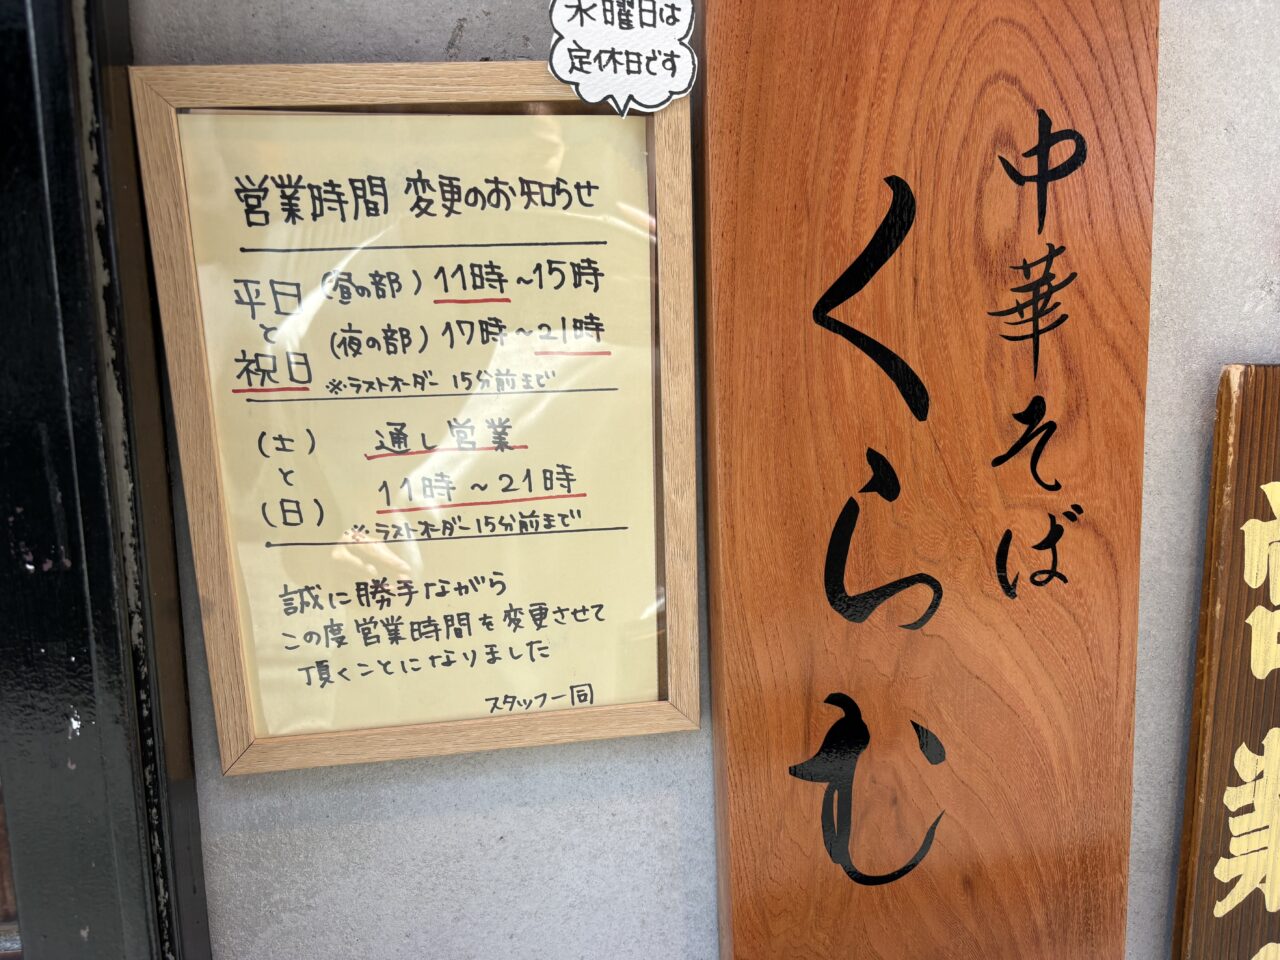 水曜日は
定休日です
営業時間 変更のお知らせ
平日 (昼の部) 11時~15時
と
祝日 (夜の部) 17時~21時
※ラストオーダー 15分前まで
(土) 通し営業
と
(日) 11時~21時
※ラストオーダー15分前まで
誠に勝手ながら
この度営業時間を変更させて
頂くことになりました
スタッフ一同
中華そば
くらむ
営業